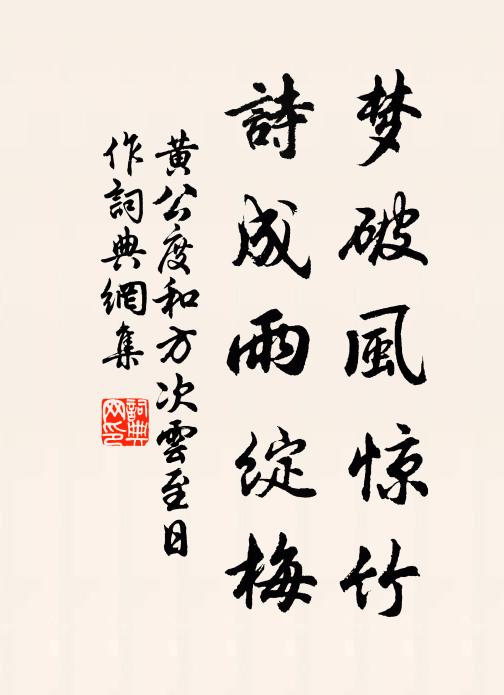 梦破風惊竹
詩成雨綻梅
黄公度和方次雲至日
作詞典網集
詞典
网印